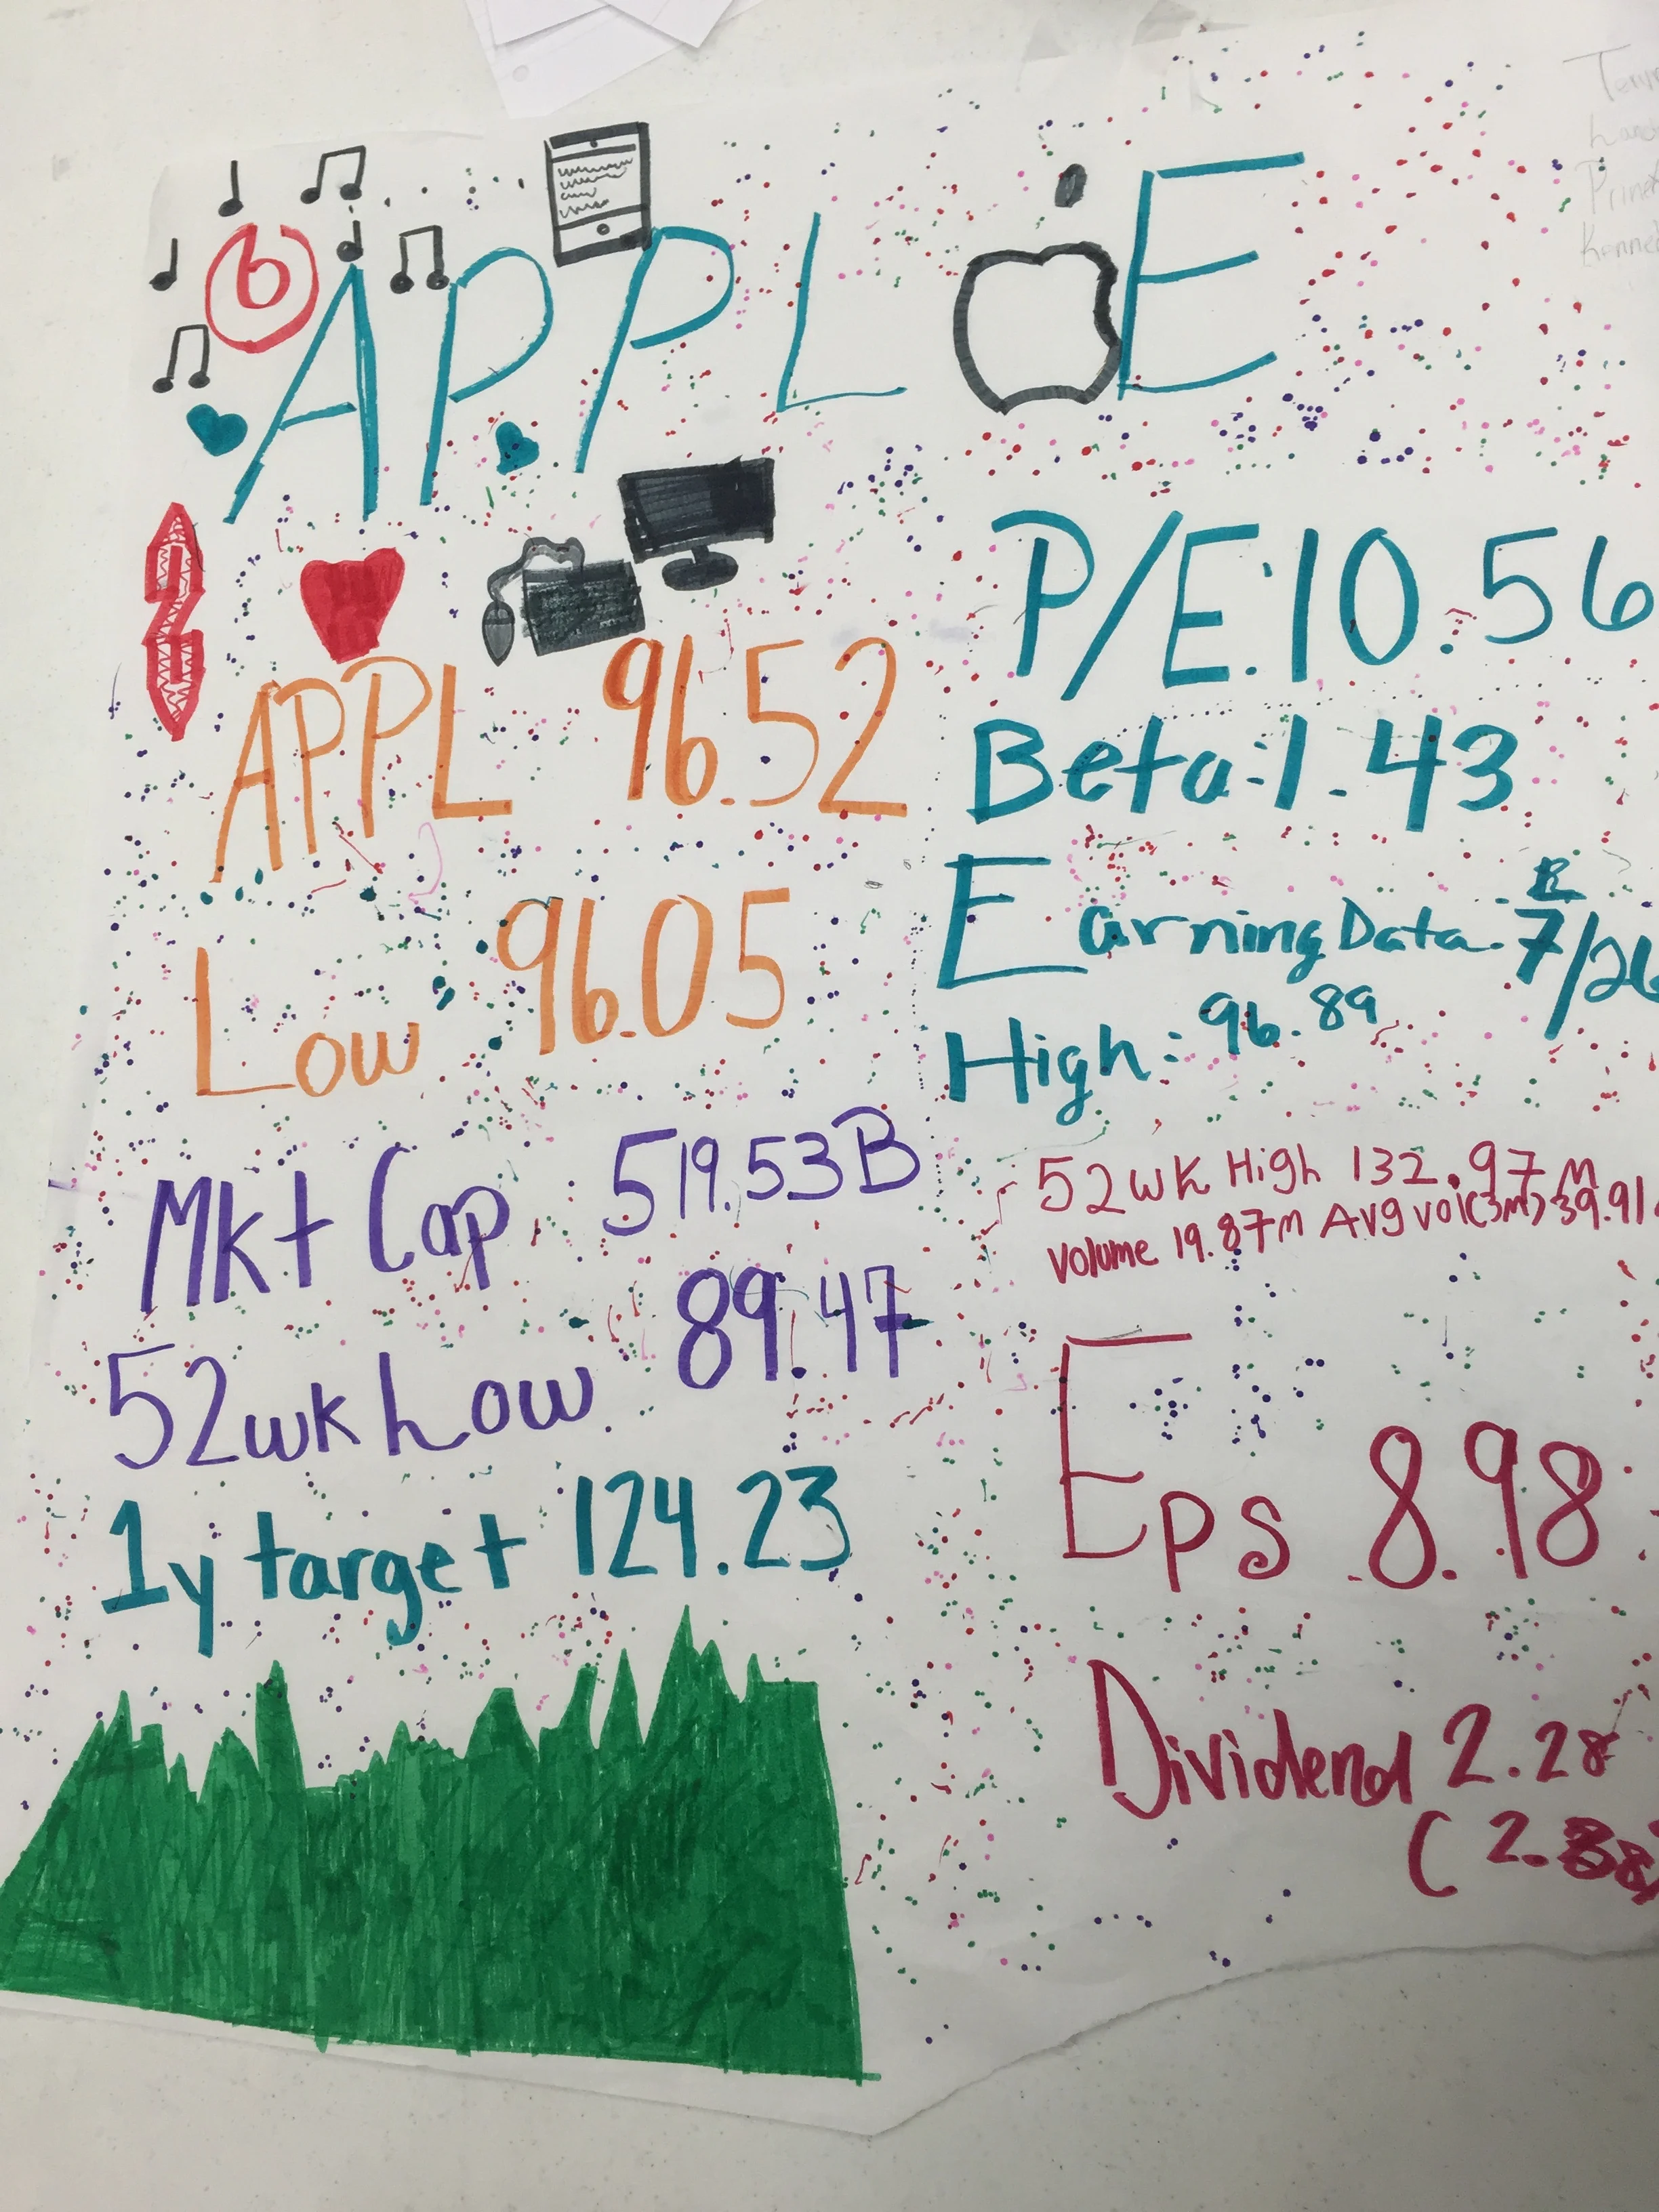 APPLE
P/E: 10.56
APPL 96.52
Beta: 1.43
Low 96.05
Earning Data: 7/26
High: 96.89
Mkt Cap 519.53B
52wk High 132.97
volume 19.87m Avg vol(3m) 39.91
52wk Low 89.47
Eps 8.98
1y target 124.23
Dividend 2.28
(2.